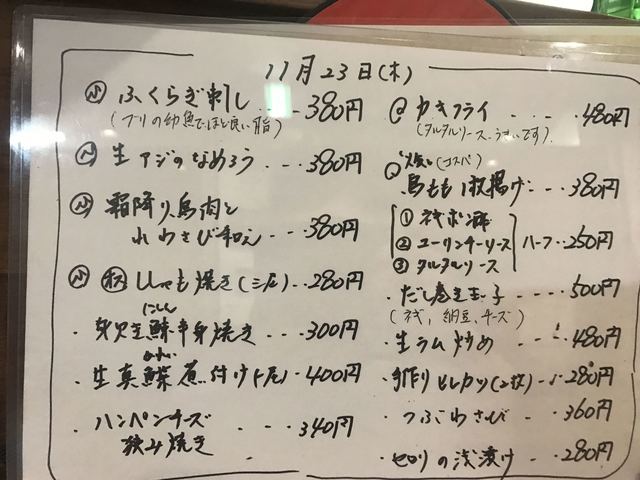 11月23日(木)
小 ふくらぎ刺し....380円
(ブリの幼魚でほど良い脂)
小 生アジのなめろう...380円
小 霜降り鳥肉と
わさび和え...380円
小 ししゃも焼き(三尾)...280円
にしん
身欠き鰊半身焼き...300円
かれい
・生真鰈煮付け1尾...400円
・ハンペンチーズ
挟み焼き...340円
カキフライ....480円
(タルタルソース、うまいです)
(コスパ)
鳥もも1枚揚げ...380円
①ネギポン酢
②ユーリンチーソース
③タルタルソース
ハーフ..250円
・だし巻き玉子....500円
(ネギ、納豆、チーズ)
・生ラム炒め...480円
・手作りヒレカツ(2枚)...280円
・つぶわさび...360円
・セロリの浅漬け...280円